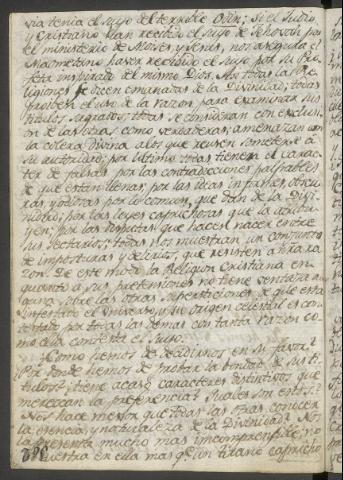 via tenia el suyo del terrible Odin; si el Judio,
y Cristiano han recibido el suyo de Jehovah por
el ministerio de Moises y Jesus, nos asegura el
Mahometano haver recibido el suyo por su Pro
feta inspirado del mismo Dios. Asi todas las Re
ligiones se dicen emanadas de la Divinidad; todas
prohiben el uso de la razon para examinar sus
titulos sagrados; todas se consideran con exclusi
on de las otras como verdaderas; amenazan con
la colera divina a los que reusen someterse à
su autoridad; por ultimo todas tienen el carac
ter de falsas por las contradicciones palpables
de que estan llenas; por las ideas infames, obscu
ras, y odiosas por lo comun, que dan de la Divi
nidad; por las leyes caprichosas que la atribu
yen; por las disputas que hacen nacer entre
sus sectarios; todas nos muestran un conjunto
de imposturas y delirios, que resisten à la ra
zon. De este modo la Religion Cristiana en
quanto a sus pretensiones no tiene ventaja al
guna sobre las otras supersticiones de que está
infestado el Universo, y su origen celestial es con
textado por todas las demas con tanta razon co
mo ella contexta el suyo.
¿Como hemos de decidirnos en su favor?
¿Por donde hemos de probar la bondad de sus ti
tulos? ¿tiene acaso caracteres distintivos que
merezcan la preferencia? ¿quales son estos?
¿Nos hace mejor que todas las otras conocer
la esencia, y naturaleza de la Divinidad? Nos
la presenta mucho mas incomprensible; no
muestra en ella mas qe. un tirano capricho